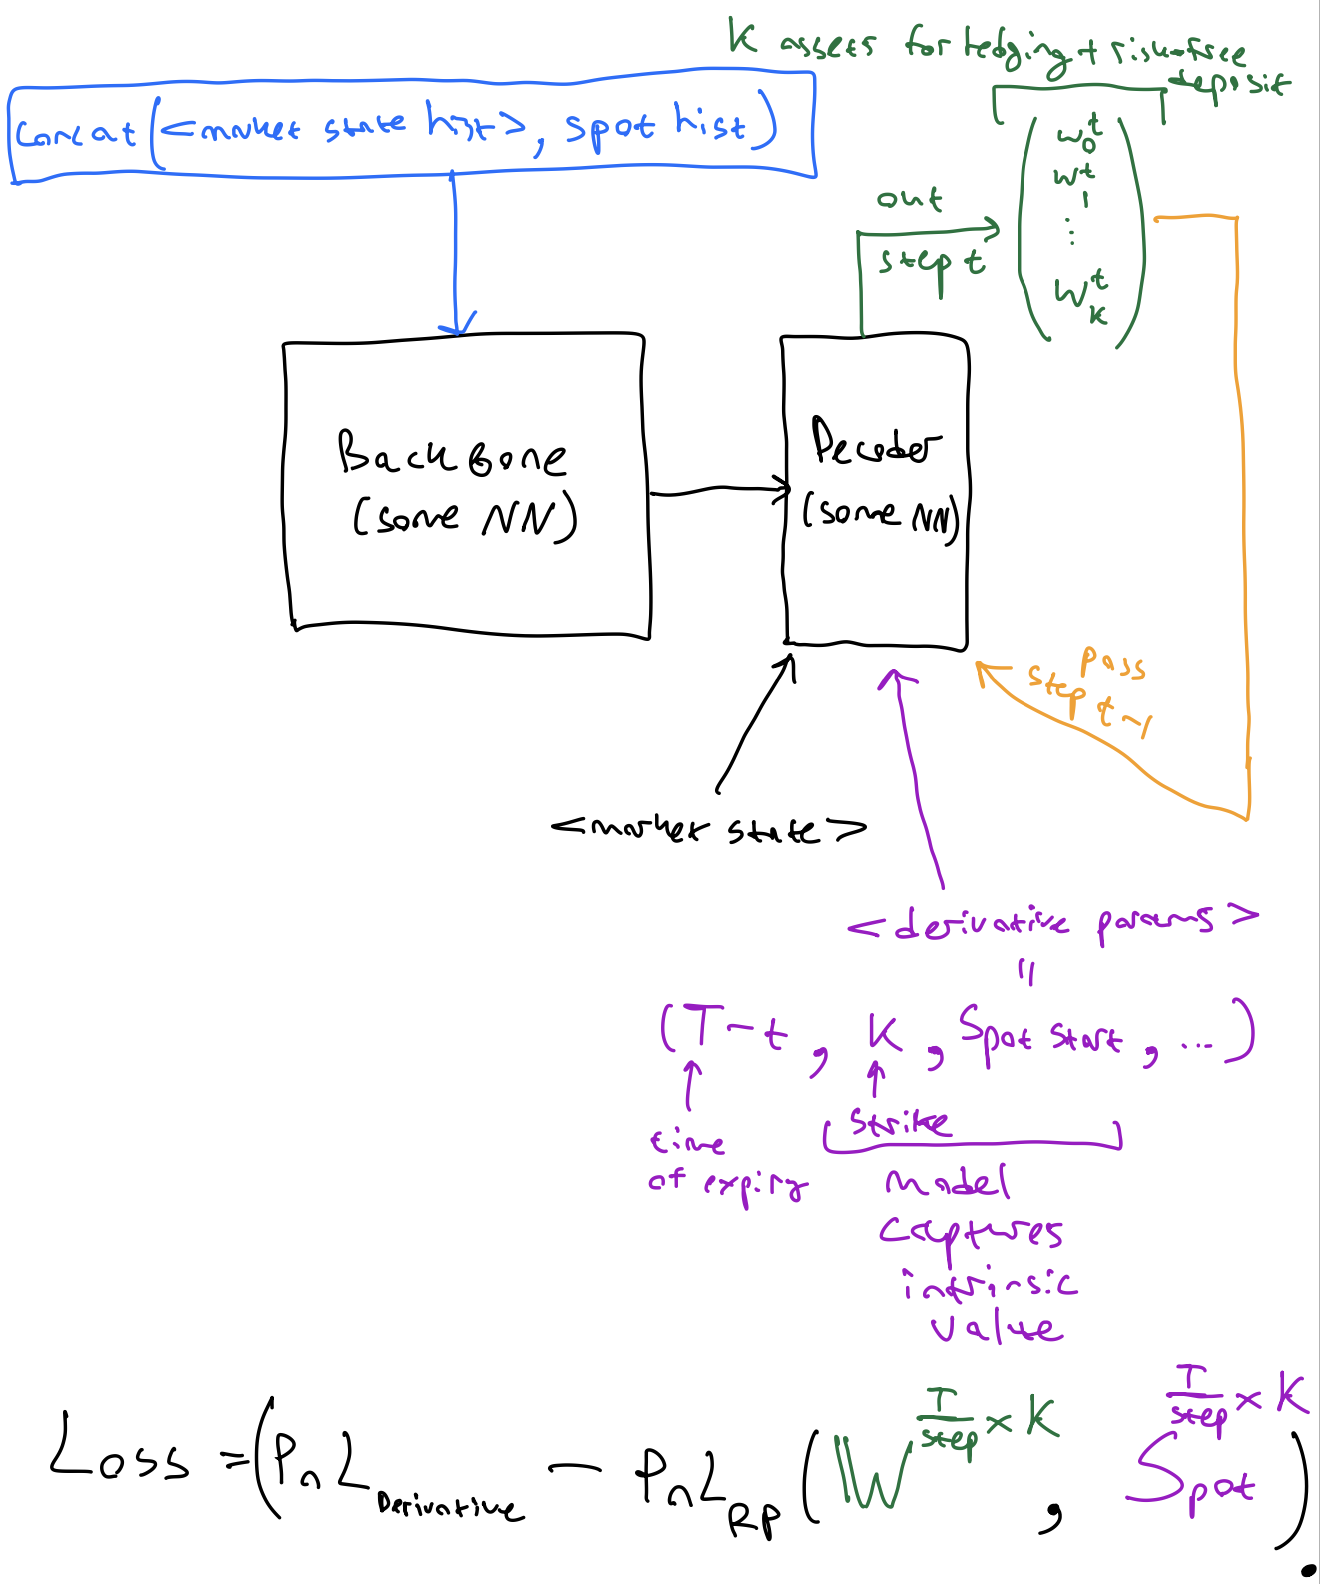 K assets for hedging + risk-free
deposit
Concat(<market state hist>, spot hist)
w_0^t
w_1^t
⋮
w_k^t
out
step t
Backbone
(some NN)
Decoder
(some NN)
pass
step t-1
<market state>
<derivative params>
=
(T-t, K, Spot start, ...)
strike
time
of expiry
model
captures
intrinsic
value
Loss = (PnL_Derivative - PnL_RP (W^{T/step × K}, Spot^{T/step × K}).